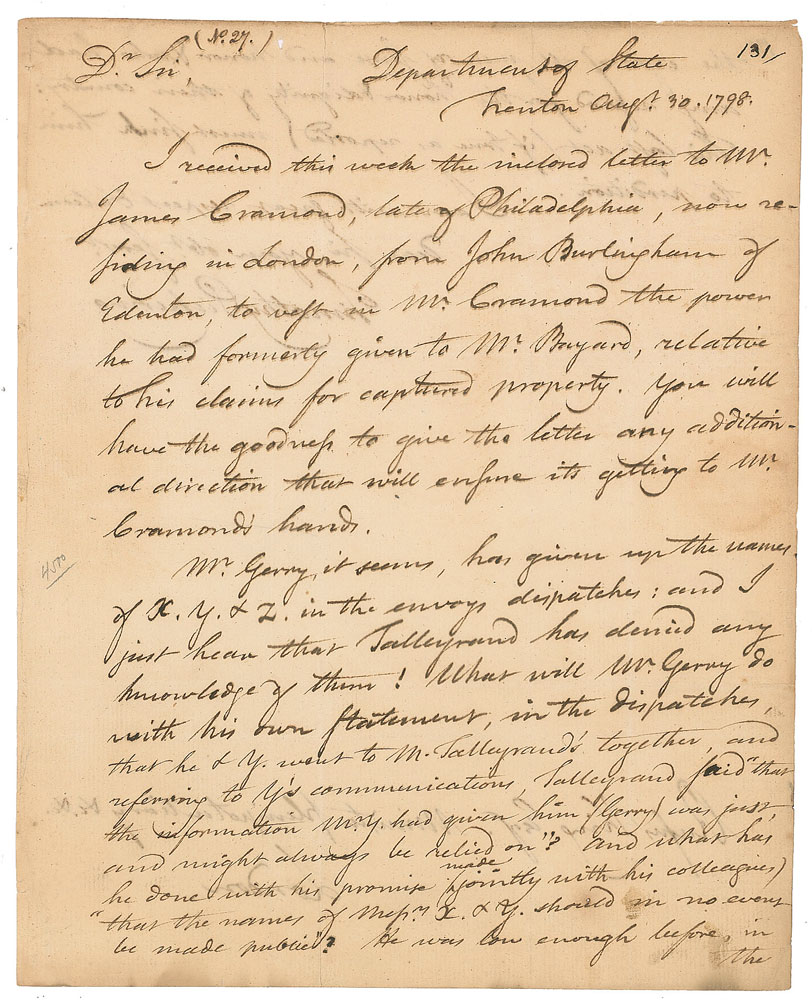 (No. 27.)
131
Dr Sir,
Department of State
Trenton Augt. 30. 1798.
I received this week the inclosed letter to Mr.
James Cramond, late of Philadelphia, now re-
siding in London, from John Burlingham of
Edenton, to vest in Mr. Cramond the power
he had formerly given to Mr. Bayard, relative
to his claims for captured property. You will
have the goodness to give the letter any addition-
al direction that will ensure its getting to Mr.
Cramond's hands.
4500
Mr. Gerry, it seems, has given up the names
of X. Y. & Z. in the envoys dispatches: and I
just hear that Talleyrand has denied any
knowledge of them! What will Mr. Gerry do
with his own statement, in the dispatches,
that he & Y. went to M. Talleyrand's together, and
referring to Y's communications, Talleyrand said "that
the information Mr. Y. had given him (Gerry) was just,
and might always be relied on"? and what has
he done with his promise (made jointly with his colleagues)
"that the names of Messrs X. & Y. should in no event
be made public"? He was low enough before, in
the